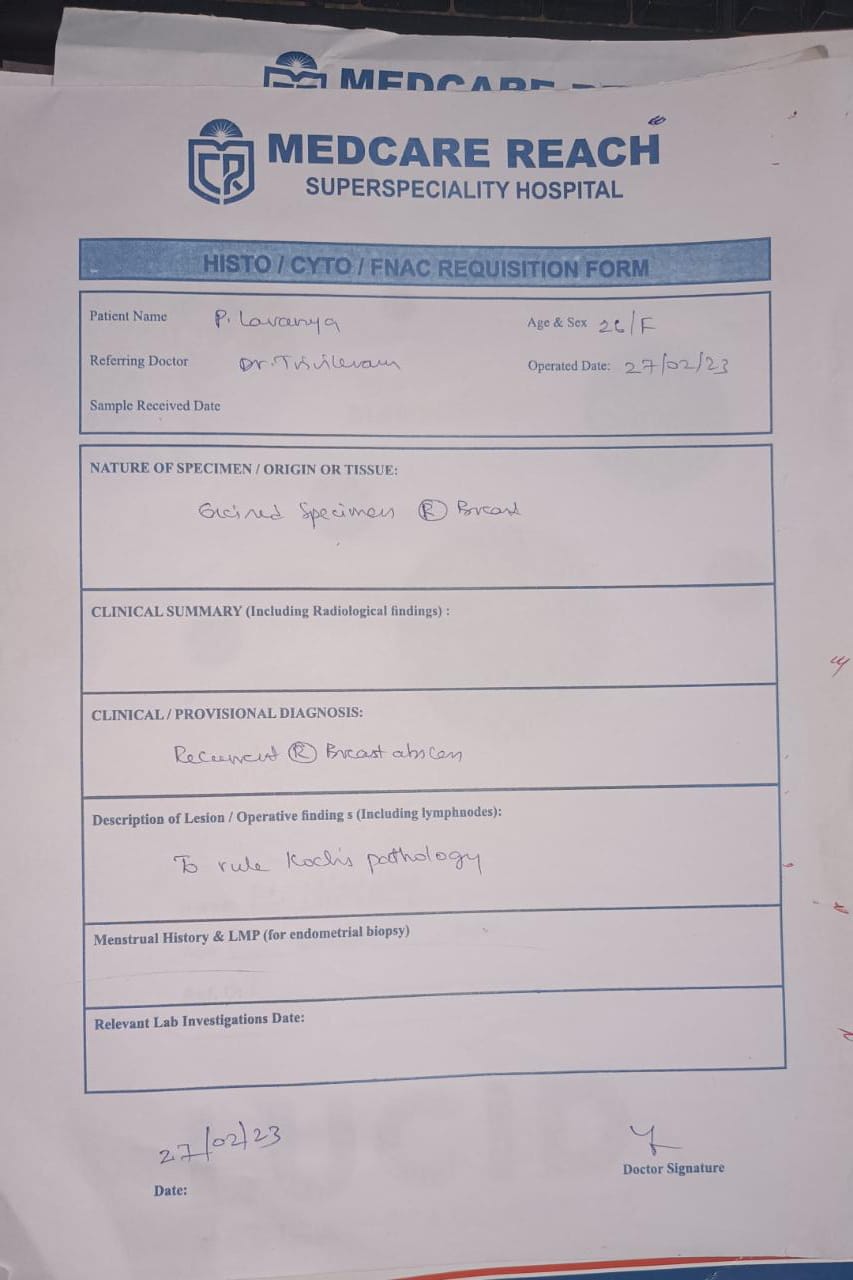 MEDCARE
MEDCARE REACH
SUPERSPECIALITY HOSPITAL
HISTO / CYTO / FNAC REQUISITION FORM
Patient Name P. Lavanya Age & Sex 26/F
Referring Doctor Dr. Operated Date: 27/02/23
Sample Received Date
NATURE OF SPECIMEN / ORIGIN OR TISSUE:
Excised Specimen Ⓡ Breast
CLINICAL SUMMARY (Including Radiological findings) :
CLINICAL / PROVISIONAL DIAGNOSIS:
Recurrent Ⓡ Breast abscess
Description of Lesion / Operative finding s (Including lymphnodes):
To rule Koch's pathology
Menstrual History & LMP (for endometrial biopsy)
Relevant Lab Investigations Date:
27/02/23
Doctor Signature
Date: